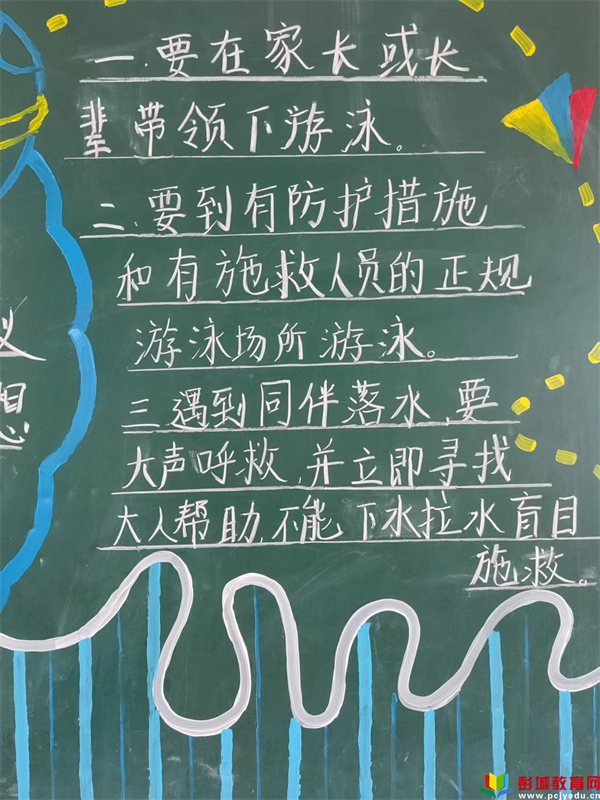 一.要在家长或长
辈带领下游泳。
二.要到有防护措施
和有施救人员的正规
游泳场所游泳。
三.遇到同伴落水,要
大声呼救,并立即寻找
大人帮助,不能下水拉水盲目
施救。
议
想
彭城教育网
www.pcjyedu.cn